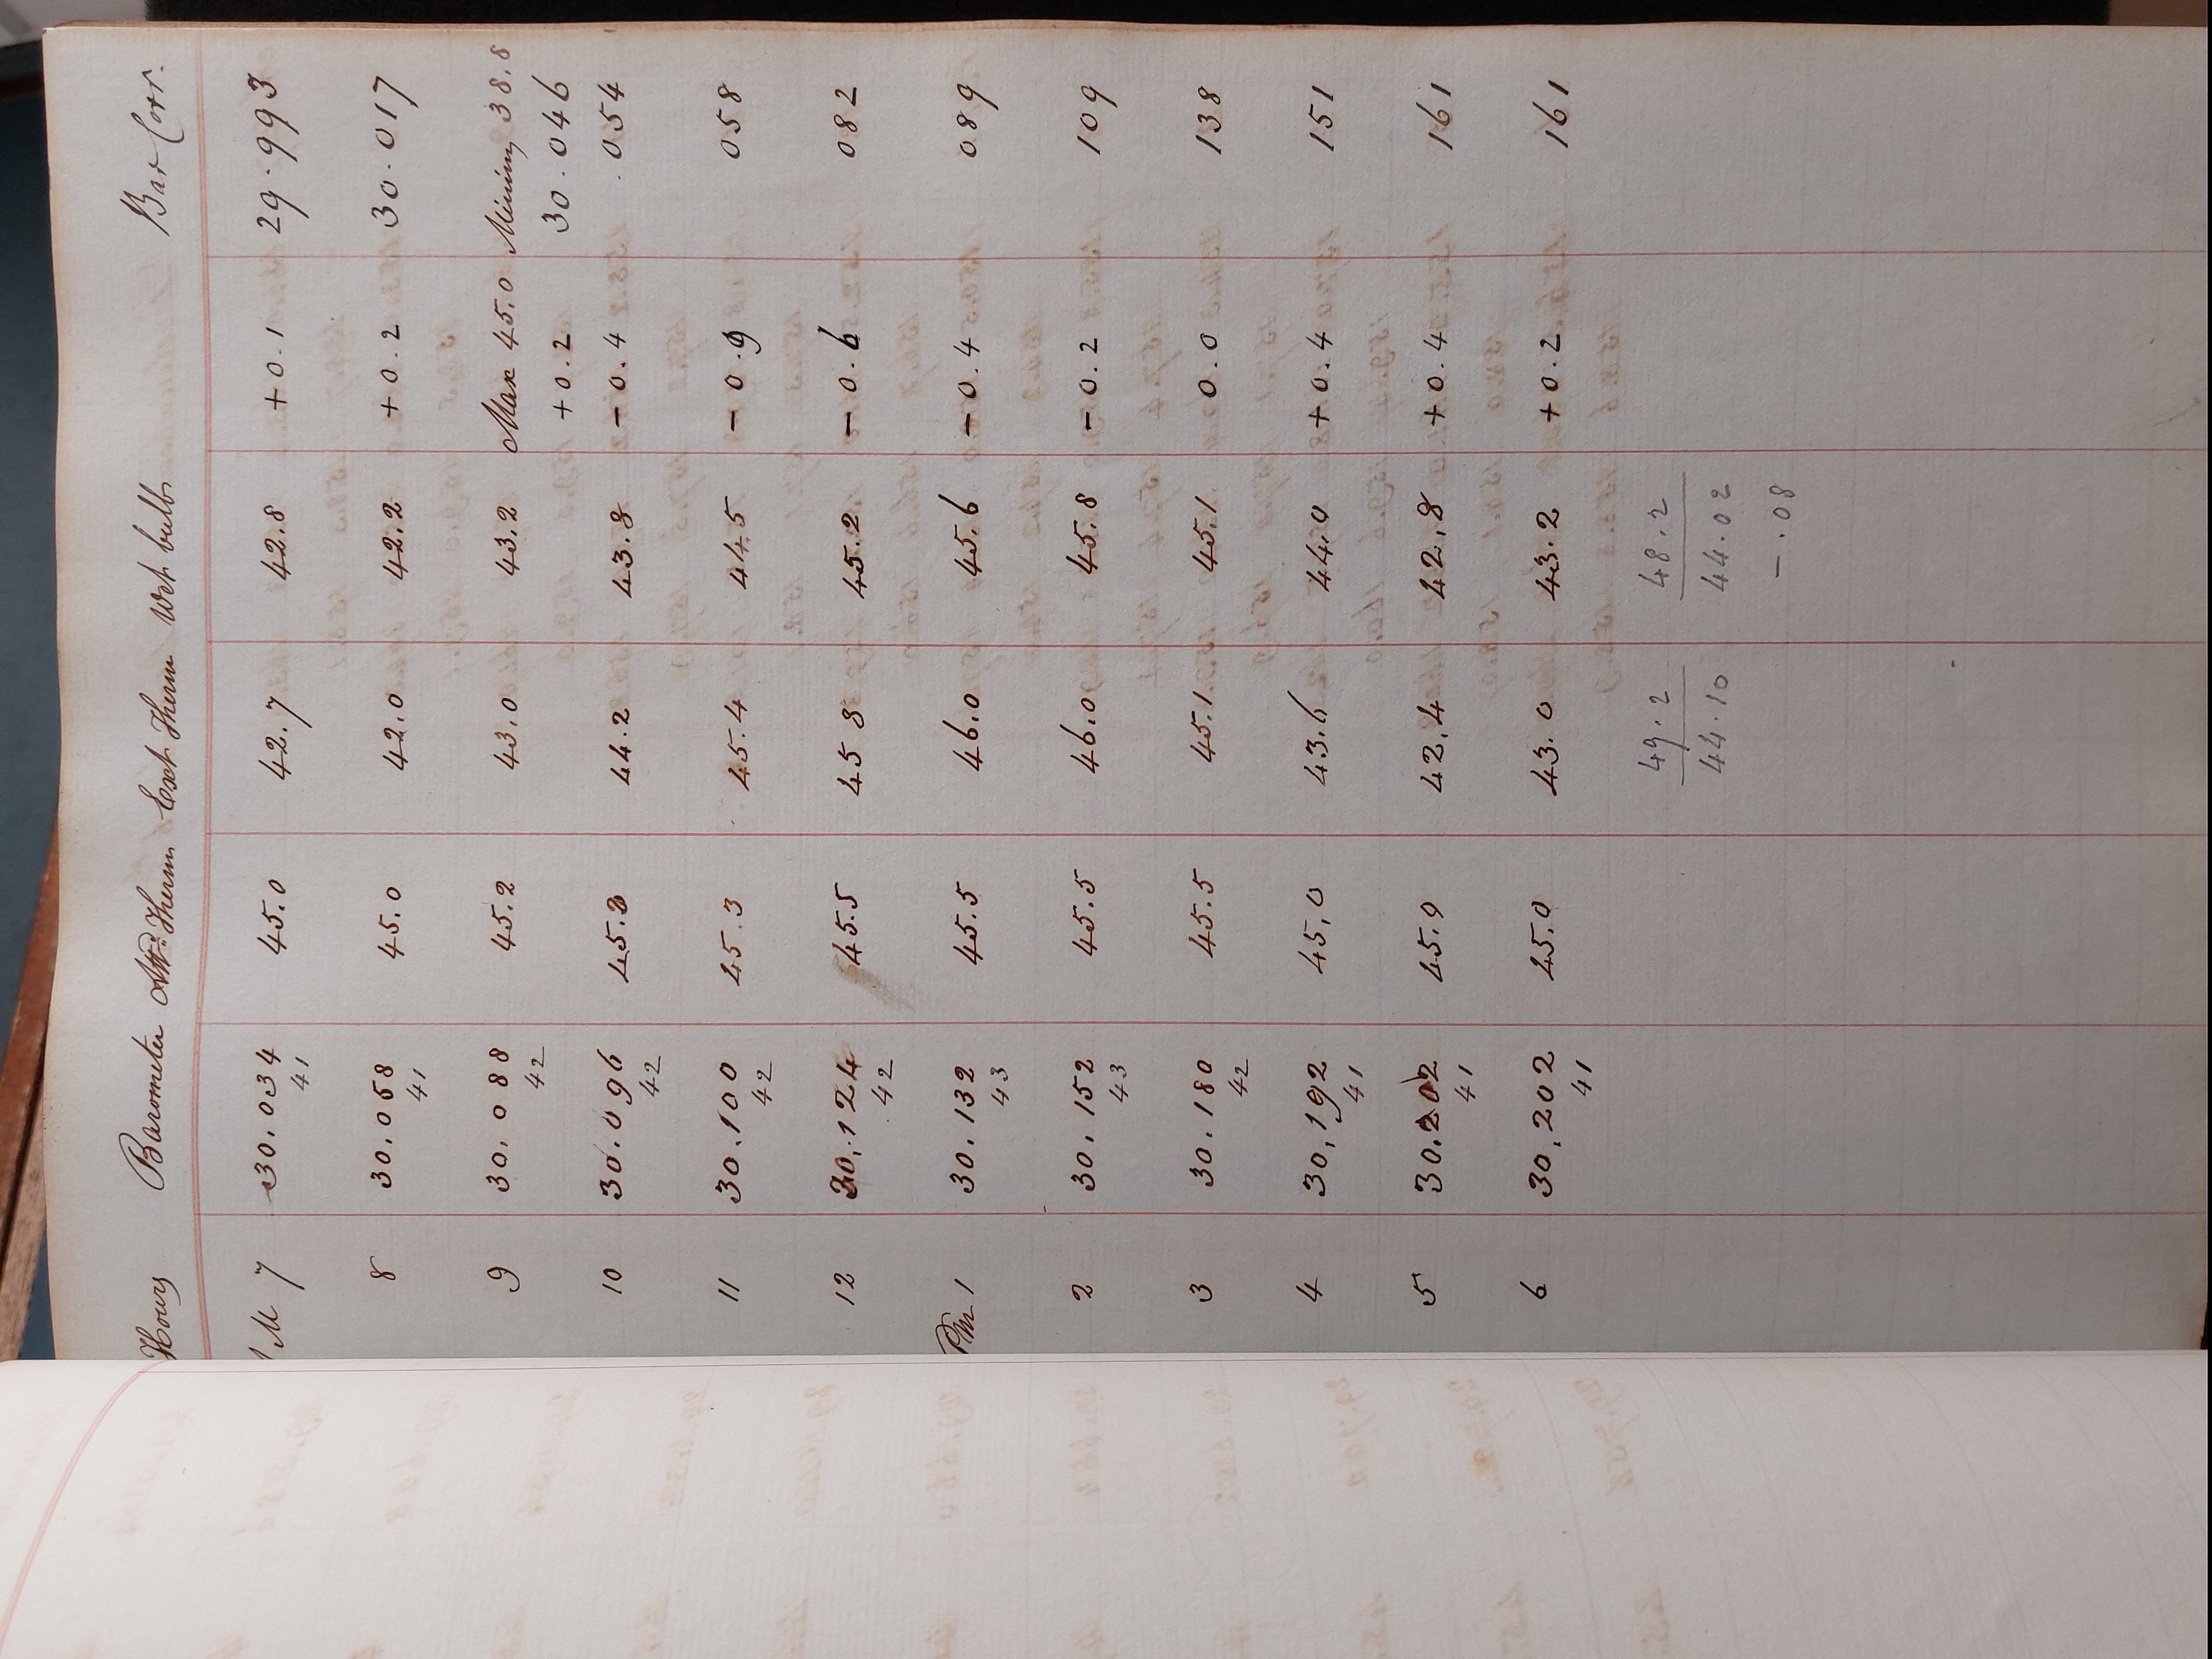 Hours Barometer Attd Therm Ext Therm Wet bulb Bar Corr.
M 7 30.034 45.0 42.7 42.8 +0.1 29.993
41
8 30.058 45.0 42.0 42.2 +0.2 30.017
41
9 30.088 45.2 43.0 43.2 Max 45.0 Minim 38.8
42 +0.2 30.046
10 30.096 44.2 43.8 -0.4 .054
42
11 30.100 45.3 45.4 44.5 -0.9 058
42
12 30.124 45.5 45 8 45.2 -0.6 082
42
Pm 1 30.132 45.5 46.0 45.6 -0.4 089
43
2 30.152 45.5 46.0 45.8 -0.2 109
43
3 30.180 45.5 45.1 45.1 0.0 138
42
4 30,192 45,0 43.6 44.0 +0.4 151
41
5 30.202 45.0 42,4 42,8 +0.4 161
41
6 30,202 45.0 43.0 43.2 +0.2 161
41
49.2 48.2
44.10 44.02
-.08